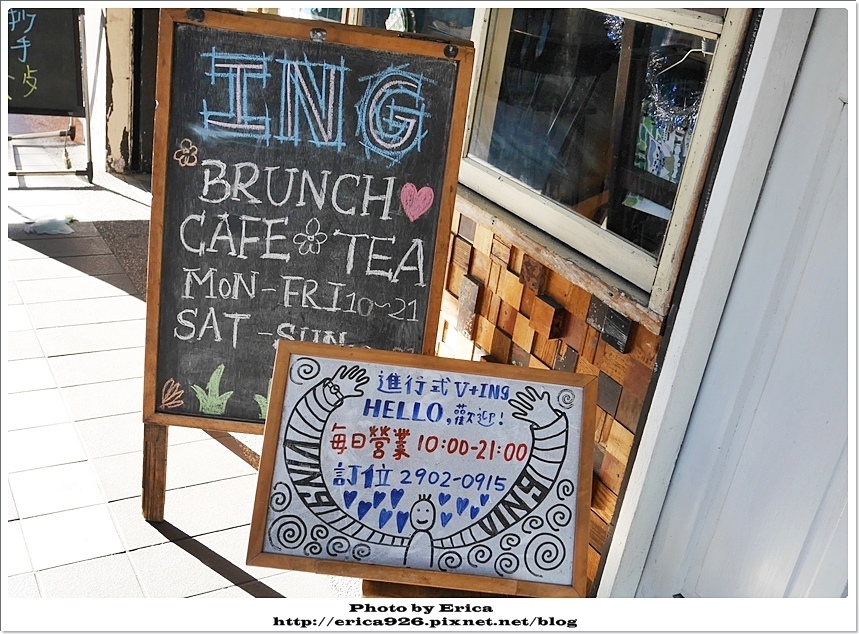 ING
BRUNCH
CAFE TEA
MON-FRI 10~21
SAT-SUN
進行式 V+ING
HELLO, 歡迎!
每日營業 10:00-21:00
訂位 2902-0915
VING
VING
Photo by Erica
http://erica926.pixnet.net/blog